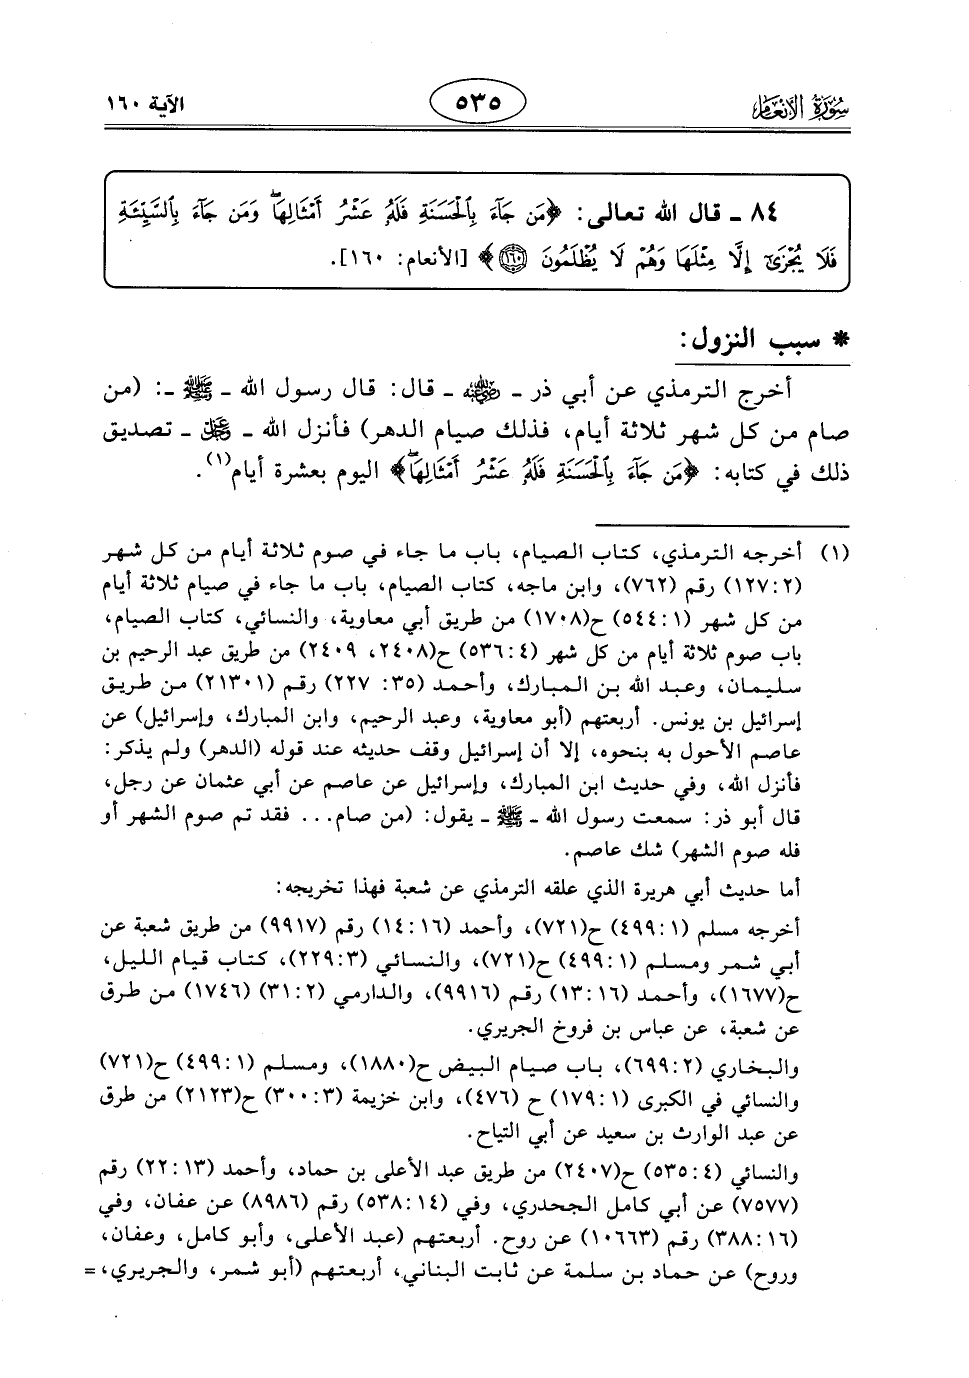 سورة الأنعام ٥٣٥ الآية ١٦٠
٨٤ ـ قال الله تعالى: ﴿مَن جَآءَ بِٱلْحَسَنَةِ فَلَهُۥ عَشْرُ أَمْثَالِهَاۖ وَمَن جَآءَ بِٱلسَّيِّئَةِ
فَلَا يُجْزَىٰٓ إِلَّا مِثْلَهَا وَهُمْ لَا يُظْلَمُونَ ۝١٦٠﴾ [الأنعام: ١٦٠].
* سبب النزول:
أخرج الترمذي عن أبي ذر ـ رضي الله عنه ـ قال: قال رسول الله ـ ﷺ ـ: (من
صام من كل شهر ثلاثة أيام، فذلك صيام الدهر) فأنزل الله ـ عز وجل ـ تصديق
ذلك في كتابه: ﴿مَن جَآءَ بِٱلْحَسَنَةِ فَلَهُۥ عَشْرُ أَمْثَالِهَاۖ﴾ اليوم بعشرة أيام(١).
(١) أخرجه الترمذي، كتاب الصيام، باب ما جاء في صوم ثلاثة أيام من كل شهر
(١٢٧:٢) رقم (٧٦٢)، وابن ماجه، كتاب الصيام، باب ما جاء في صيام ثلاثة أيام
من كل شهر (٥٤٤:١) ح(١٧٠٨) من طريق أبي معاوية، والنسائي، كتاب الصيام،
باب صوم ثلاثة أيام من كل شهر (٥٣٦:٤) ح(٢٤٠٨، ٢٤٠٩) من طريق عبد الرحيم بن
سليمان، وعبد الله بن المبارك، وأحمد (٣٥: ٢٢٧) رقم (٢١٣٠١) من طريق
إسرائيل بن يونس. أربعتهم (أبو معاوية، وعبد الرحيم، وابن المبارك، وإسرائيل) عن
عاصم الأحول به بنحوه، إلا أن إسرائيل وقف حديثه عند قوله (الدهر) ولم يذكر:
فأنزل الله، وفي حديث ابن المبارك، وإسرائيل عن عاصم عن أبي عثمان عن رجل،
قال أبو ذر: سمعت رسول الله ـ ﷺ ـ يقول: (من صام... فقد تم صوم الشهر أو
فله صوم الشهر) شك عاصم.
أما حديث أبي هريرة الذي علقه الترمذي عن شعبة فهذا تخريجه:
أخرجه مسلم (٤٩٩:١) ح(٧٢١)، وأحمد (١٤:١٦) رقم (٩٩١٧) من طريق شعبة عن
أبي شمر ومسلم (٤٩٩:١) ح(٧٢١)، والنسائي (٢٢٩:٣)، كتاب قيام الليل،
ح(١٦٧٧)، وأحمد (١٣:١٦) رقم (٩٩١٦)، والدارمي (٣١:٢) (١٧٤٦) من طرق
عن شعبة، عن عباس بن فروخ الجريري.
والبخاري (٦٩٩:٢)، باب صيام البيض ح(١٨٨٠)، ومسلم (٤٩٩:١) ح(٧٢١)
والنسائي في الكبرى (١٧٩:١) ح (٤٧٦)، وابن خزيمة (٣٠٠:٣) ح(٢١٢٣) من طرق
عن عبد الوارث بن سعيد عن أبي التياح.
والنسائي (٥٣٥:٤) ح(٢٤٠٧) من طريق عبد الأعلى بن حماد، وأحمد (٢٢:١٣) رقم
(٧٥٧٧) عن أبي كامل الجحدري، وفي (٥٣٨:١٤) رقم (٨٩٨٦) عن عفان، وفي
(٣٨٨:١٦) رقم (١٠٦٦٣) عن روح. أربعتهم (عبد الأعلى، وأبو كامل، وعفان،
وروح) عن حماد بن سلمة عن ثابت البناني، أربعتهم (أبو شمر، والجريري، =